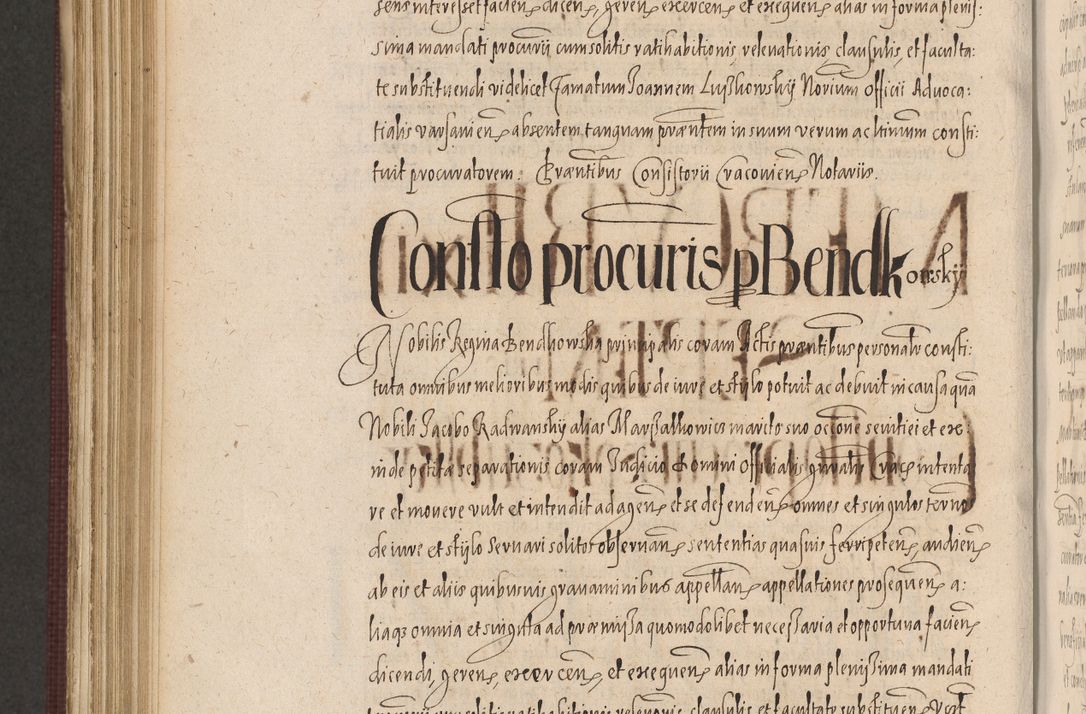 sens interesset facien dicen, geren exercen et exequen alias in forma plenis:
sima mandati procurij cum solitis ratihabitionis, relevationis clausulis, et faculta:
te substituendi videlicet Famatum Joannem Lupkowsky Norium Officii Advoca:
tialis varsavien absentem tanquam praentem in suum verum ac ltimum consti:
tuit procuratorem. Praentibus Consistorii Cracovien Notariis.
Consto procuris p Bendkowsky
Nobilis Regina Bendkowska principalis coram Actis praentibus personalr consti:
tuta omnibus melioribus modis quibus de iure et stylo potuit ac debuit in causa quam
Nobili Jacobo Radwansky alias Marszalkowicz marito suo occone sevitiei et ex:
inde petitae separationis coram Judicio Domini Officialis gnralis Crac intenta
re et movere vult et intendit ad agen et se defenden omnes et singulos ternos
de iure et stylo servari solitos observan sententias quasvis ferri peten, audien
ab eis et aliis quibusvis gravaminibus appellan appellationes prosequen a:
liaqz omnia et singula ad praemissa quomodolibet necessaria et opportuna facien
dicendi, geren, exercen, et exequen alias in forma plenissima mandati